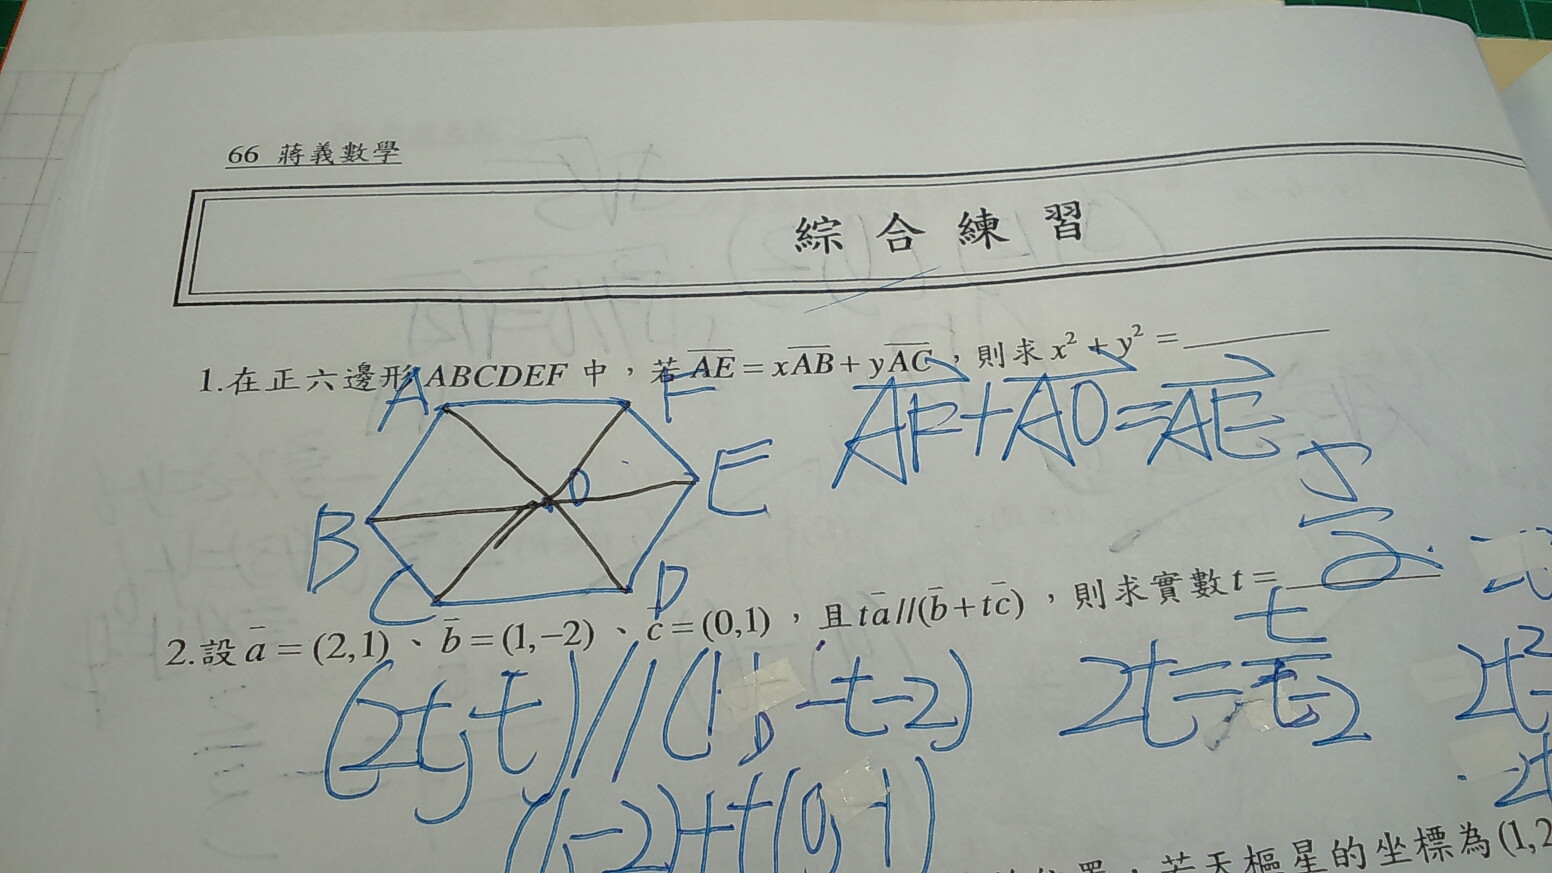 66 蔣義數學
綜合練習
1.在正六邊形ABCDEF中，若AE=xAB+yAC，則求x²+y²=
A F
E
B
C D
O
AF+AO=AE
5
2
2.設a=(2,1)、b=(1,-2)、c=(0,1)，且ta//(b+tc)，則求實數t=
(2t,t)//(1, t-2)
2t=t/t-2
2t²
(1,-2)+t(0,1)
若天樞星的坐標為(1,2